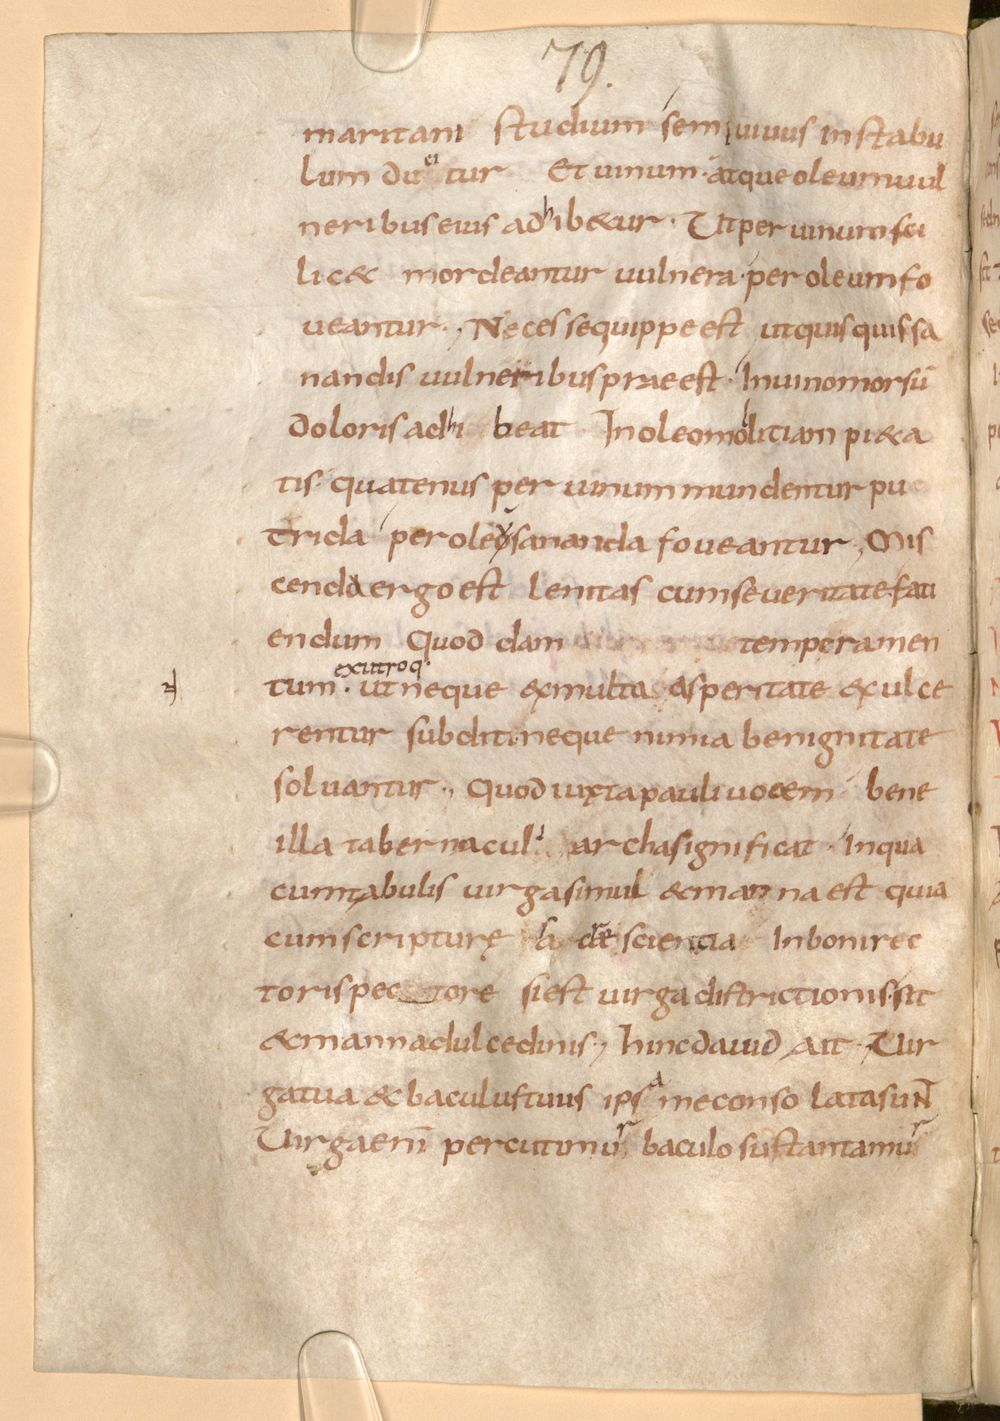 79.
maritani studium semiuiuus in stabu
lum du ci tur Et uinum · atque oleum uul
neribus eius adhib&ur · Ut per uinum sci
lic& mordeantur uulnera · per oleum fo
ueantur ·, Necesse quippe est ut quisquis sa
nandis uulneribus praeest · In uino morsū
doloris adhi beat In oleo mollitiam pi&a
tis quatenus per uinum mundentur pu
trida per oleū sananda foueantur, Mis
cenda ergo est lenitas cum seueritate · fati
endum quod dam temperamen
ex utroq·
tum · ut neque ex multa asperitate exulce
rentur subditi neque nimia benignitate
soluantur ·, Quod iuxta pauli uocem bene
illa tabernaculi archa significat · In qua
cum tabulis uirga simul & manna est quia
cum scripturę scientia In boni rec
toris pectore si est uirga districtionis · sit
& manna dulcedinis, hinc dauid ait · Uir
ga tua & baculus tuus ipsa me conso lata suN̄
Uirga eni percutimur baculo sustantamur